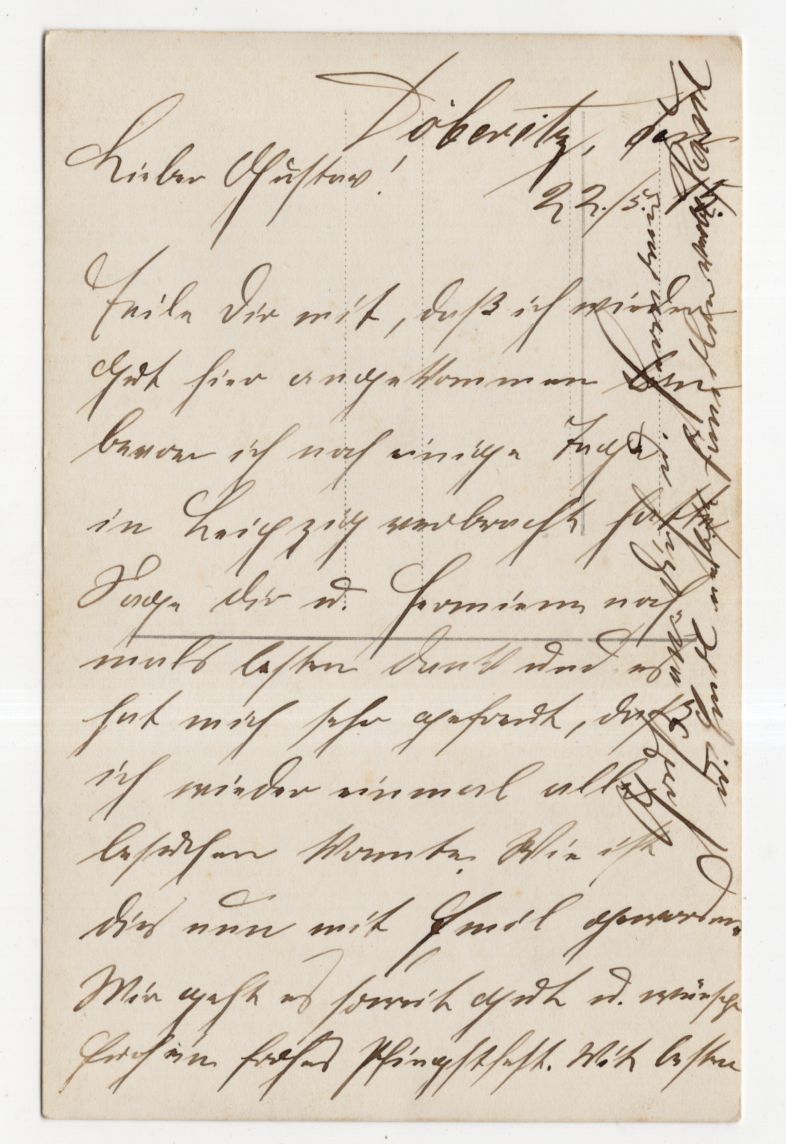 Döberitz, den
22./5.
Lieber Gustav!
Teile Dir mit, daß ich wieder
gut hier angekommen bin
bevor ich noch einige Tage
in Leipzig verbracht hatte
Sage dir u. Hermiene noch
mals besten Dank und es
hat mich sehr gefreut, daß
ich wieder einmal alle
besuchen konnte. Wie ist
dies nun mit Emil geworden.
Mir geht es soweit gut u. wünsche
Euch ein frohes Pfingstfest. Mit besten